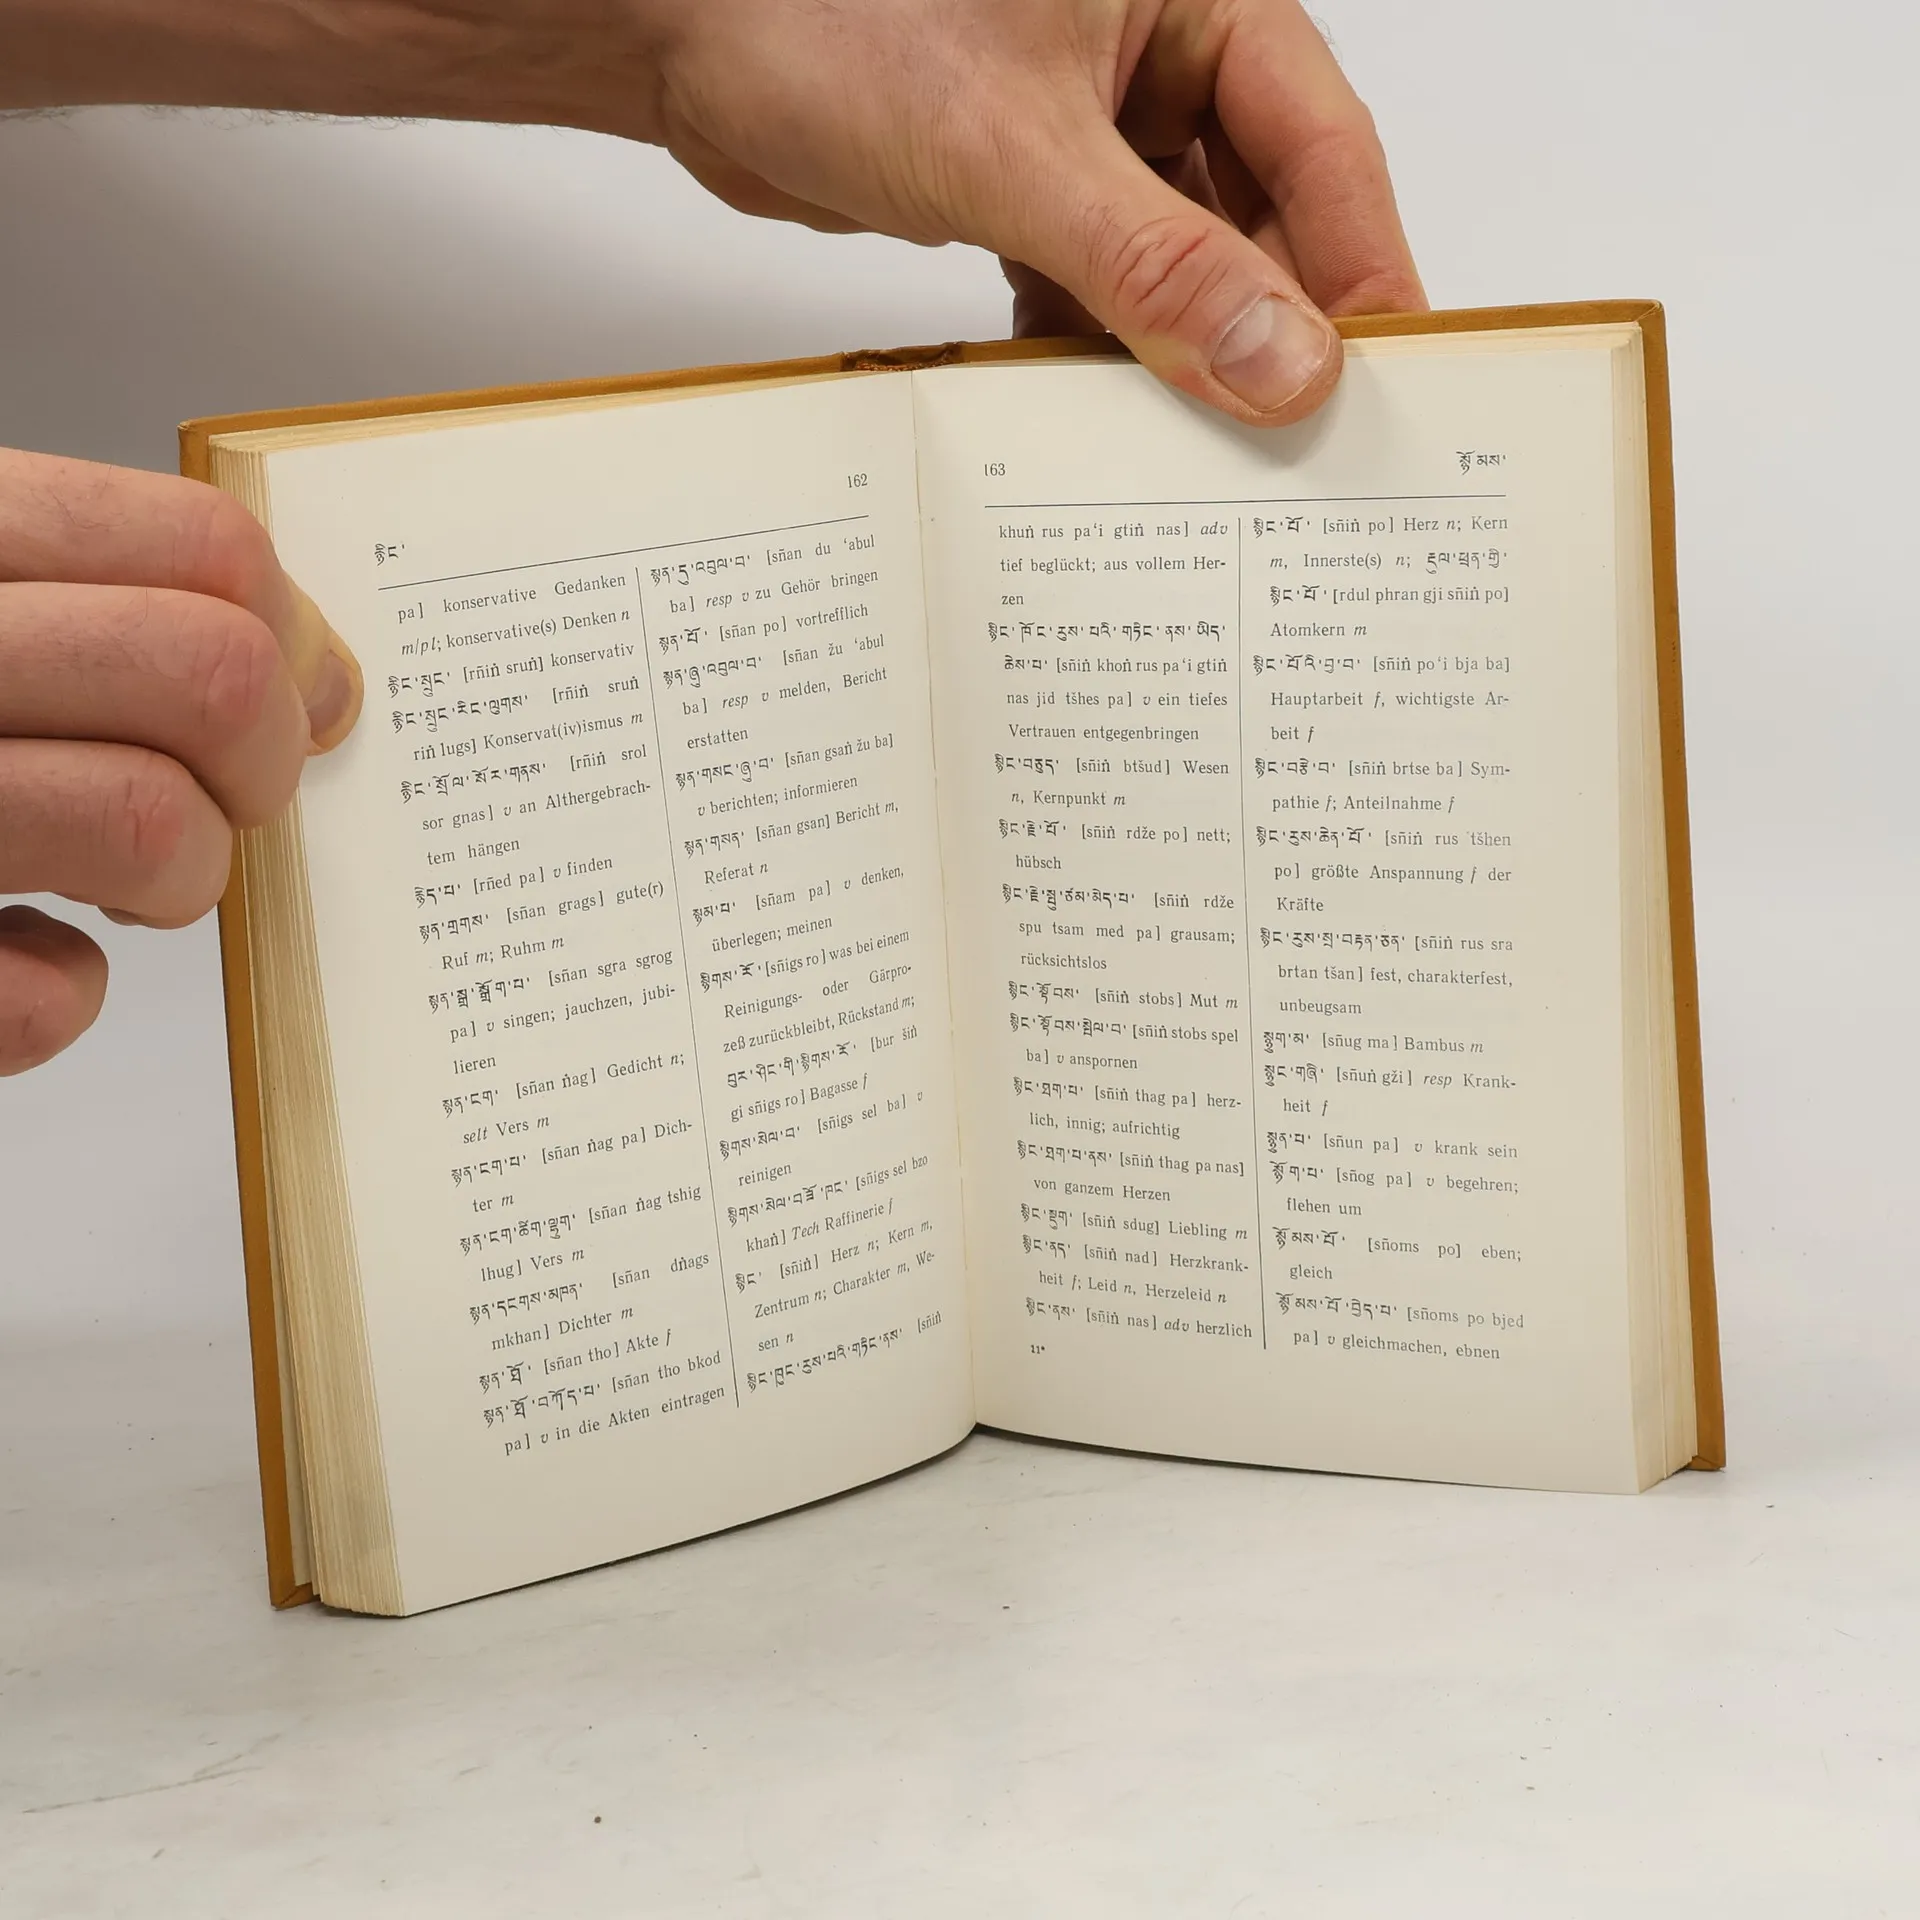 162
རྙིང་
pa] konservative Gedanken
m/pl; konservative(s) Denken n
རྙིང་སྲུང་ [rñiṅ sruṅ] konservativ
རྙིང་སྲུང་རིང་ལུགས་ [rñiṅ sruṅ
riṅ lugs] Konservat(iv)ismus m
རྙིང་སྲོལ་སོར་གནས་ [rñiṅ srol
sor gnas] v an Althergebrach-
tem hängen
རྙེད་པ་ [rñed pa] v finden
སྙན་གྲགས་ [sñan grags] gute(r)
Ruf m; Ruhm m
སྙན་སྒྲ་སྒྲོག་པ་ [sñan sgra sgrog
pa] v singen; jauchzen, jubi-
lieren
སྙན་ངག་ [sñan ṅag] Gedicht n;
selt Vers m
སྙན་ངག་པ་ [sñan ṅag pa] Dich-
ter m
སྙན་ངག་ཚིག་ལྷུག་ [sñan ṅag tshig
lhug] Vers m
སྙན་དངགས་མཁན་ [sñan dṅags
mkhan] Dichter m
སྙན་ཐོ་ [sñan tho] Akte f
སྙན་ཐོ་བཀོད་པ་ [sñan tho bkod
pa] v in die Akten eintragen
སྙན་དུ་འབུལ་བ་ [sñan du ‘abul
ba] resp v zu Gehör bringen
སྙན་པོ་ [sñan po] vortrefflich
སྙན་ཞུ་འབུལ་བ་ [sñan žu ‘abul
ba] resp v melden, Bericht
erstatten
སྙན་གསང་ཞུ་བ་ [sñan gsaṅ žu ba]
v berichten; informieren
སྙན་གསན་ [sñan gsan] Bericht m,
Referat n
སྙམ་པ་ [sñam pa] v denken,
überlegen; meinen
སྙིགས་རོ་ [sñigs ro] was bei einem
Reinigungs- oder Gärpro-
zeß zurückbleibt, Rückstand m;
བུར་ཤིང་གི་སྙིགས་རོ་ [bur šiṅ
gi sñigs ro] Bagasse f
སྙིགས་སེལ་བ་ [sñigs sel ba] v
reinigen
སྙིགས་སེལ་བཟོ་ཁང་ [sñigs sel bzo
khaṅ] Tech Raffinerie f
སྙིང་ [sñiṅ] Herz n; Kern m,
Zentrum n; Charakter m, We-
sen n
སྙིང་ཁུང་རུས་པའི་གཏིང་ནས་ [sñiṅ
163
སྙོམས་
khuṅ rus pa‘i gtiṅ nas] adv
tief beglückt; aus vollem Her-
zen
སྙིང་ཁོང་རུས་པའི་གཏིང་ནས་ཡིད་
ཆེས་པ་ [sñiṅ khoṅ rus pa‘i gtiṅ
nas jid tšhes pa] v ein tiefes
Vertrauen entgegenbringen
སྙིང་བཅུད་ [sñiṅ btšud] Wesen
n, Kernpunkt m
སྙིང་རྗེ་པོ་ [sñiṅ rdže po] nett;
hübsch
སྙིང་རྗེ་སྤུ་ཙམ་མེད་པ་ [sñiṅ rdže
spu tsam med pa] grausam;
rücksichtslos
སྙིང་སྟོབས་ [sñiṅ stobs] Mut m
སྙིང་སྟོབས་སྤེལ་བ་ [sñiṅ stobs spel
ba] v anspornen
སྙིང་ཐག་པ་ [sñiṅ thag pa] herz-
lich, innig; aufrichtig
སྙིང་ཐག་པ་ནས་ [sñiṅ thag pa nas]
von ganzem Herzen
སྙིང་སྡུག་ [sñiṅ sdug] Liebling m
སྙིང་ནད་ [sñiṅ nad] Herzkrank-
heit f; Leid n, Herzeleid n
སྙིང་ནས་ [sñiṅ nas] adv herzlich
11*
སྙིང་པོ་ [sñiṅ po] Herz n; Kern
m, Innerste(s) n; རྡུལ་ཕྲན་གྱི་
སྙིང་པོ་ [rdul phran gji sñiṅ po]
Atomkern m
སྙིང་པོའི་བྱ་བ་ [sñiṅ po‘i bja ba]
Hauptarbeit f, wichtigste Ar-
beit f
སྙིང་བརྩེ་བ་ [sñiṅ brtse ba] Sym-
pathie f; Anteilnahme f
སྙིང་རུས་ཆེན་པོ་ [sñiṅ rus tšhen
po] größte Anspannung f der
Kräfte
སྙིང་རུས་སྲ་བརྟན་ཅན་ [sñiṅ rus sra
brtan tšan] fest, charakterfest,
unbeugsam
སྙུག་མ་ [sñug ma] Bambus m
སྙུང་གཞི་ [sñuṅ gži] resp Krank-
heit f
སྙུན་པ་ [sñun pa] v krank sein
སྙོག་པ་ [sñog pa] v begehren;
flehen um
སྙོམས་པོ་ [sñoms po] eben;
gleich
སྙོམས་པོ་བྱེད་པ་ [sñoms po bjed
pa] v gleichmachen, ebnen